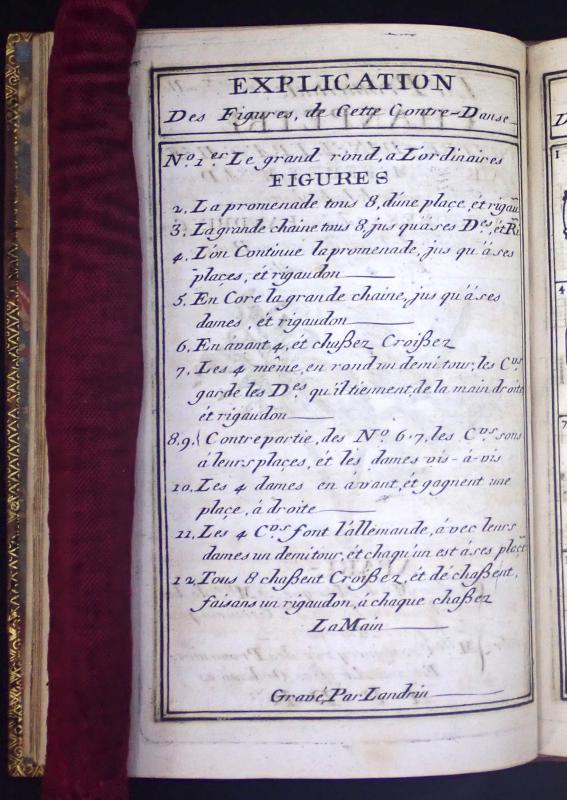 EXPLICATION
Des Figures, de Cette Contre-Danse
No. 1.er Le grand rond, a L'ordinaires
FIGURES
2. La promenade tous 8, d'une plaçe, ét rigau
3. La grande chaine tous 8, jus qu'à ses D.es, ét Ri
4. L'on Continue la promenade, jus qu'à ses
plaçes, ét rigaudon
5. En Core la grande chaine, jus qu'à ses
dames, ét rigaudon
6. En avant 4, et chaßez Croißez
7. Les 4 même, en rond un demi tour, les C.vs
garde les D.es qu'il tiennent, de la main droite
ét rigaudon
8.9. Contre partie, des No. 6.7, les C.vs sons
á leurs plaçes, ét lés dames vis-à-vis
10. Les 4 dames en ávant, ét gagnent une
plaçe, à droite
11. Les 4 C.vs font l'allemande, ávec leurs
dames un demi tour, ét chaqu'un est á ses plaçe
12. Tous 8 chaßent Croißez, ét dé chaßent,
faisans un rigaudon, á chaque chaßez
La Main
Gravé, Par Landrin
D
1
4
7